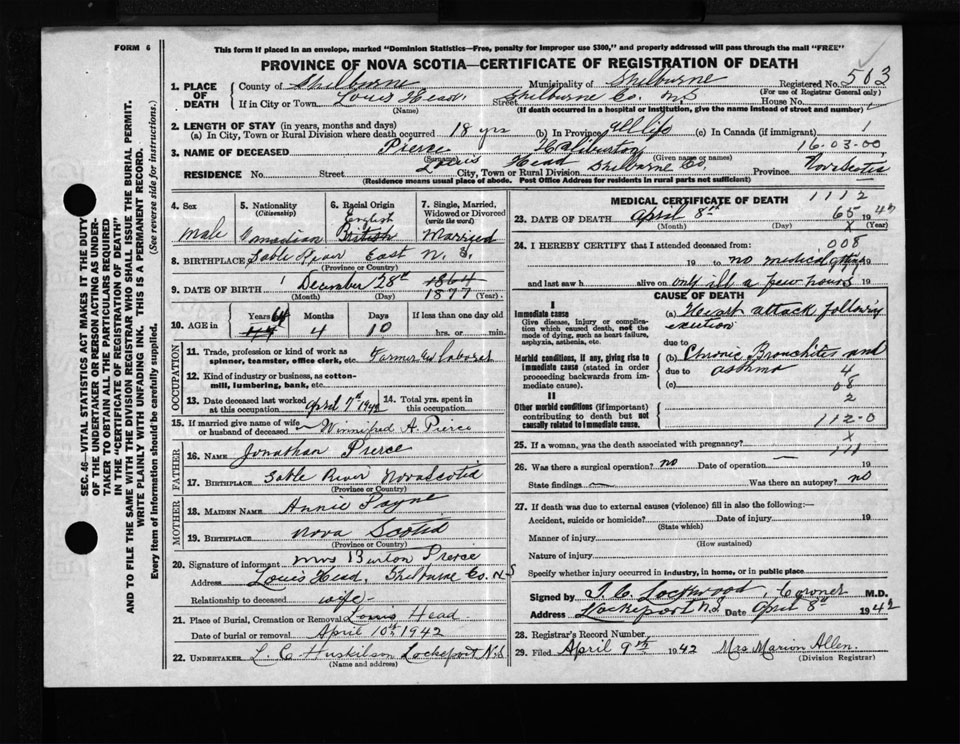 FORM 6
This form if placed in an envelope, marked "Dominion Statistics—Free, penalty for improper use $300," and properly addressed will pass through the mail "FREE"
PROVINCE OF NOVA SCOTIA—CERTIFICATE OF REGISTRATION OF DEATH
1. PLACE OF DEATH County of Shelburne Municipality of Shelburne Registered No. 503
(For use of Registrar General only)
If in City or Town Louis Head. Street Shelburne Co. N.S House No.
(Name) (If death occurred in a hospital or institution, give the name instead of street and number)
2. LENGTH OF STAY (in years, months and days)
(a) In City, Town or Rural Division where death occurred 18 yrs (b) In Province all life (c) In Canada (if immigrant) 1
16-03-00
3. NAME OF DECEASED Pierce Haliburton
(Surname) (Given name or names)
RESIDENCE No. Street Louis Head City, Town or Rural Division Shelburne Co, Province Nova Scotia
(Residence means usual place of abode. Post Office Address for residents in rural parts not sufficient)
SEC. 46—VITAL STATISTICS ACT MAKES IT THE DUTY
OF THE UNDERTAKER OR PERSON ACTING AS UNDER-
TAKER TO OBTAIN ALL THE PARTICULARS REQUIRED
IN THE "CERTIFICATE OF REGISTRATION OF DEATH"
AND TO FILE THE SAME WITH THE DIVISION REGISTRAR WHO SHALL ISSUE THE BURIAL PERMIT.
WRITE PLAINLY WITH UNFADING INK. THIS IS A PERMANENT RECORD.
Every item of Information should be carefully supplied. (See reverse side for instructions.)
4. Sex 5. Nationality (Citizenship) 6. Racial Origin 7. Single, Married, Widowed or Divorced (write the word)
Male Canadian English British Married
8. BIRTHPLACE Sable River East N.S.
(Province or Country)
9. DATE OF BIRTH December 28th 1864 1877
(Month) (Day) (Year)
10. AGE in Years 64 Months 4 Days 10 If less than one day old
hrs. or min.
OCCUPATION
11. Trade, profession or kind of work as spinner, teamster, office clerk, etc. Farmer and Laborer
12. Kind of industry or business, as cotton-mill, lumbering, bank, etc.
13. Date deceased last worked at this occupation April 7th 1942 14. Total yrs. spent in this occupation
15. If married give name of wife or husband of deceased Winnifred A. Pierce
FATHER
16. Name Jonathan Pierce
17. Birthplace Sable River Nova Scotia
(Province or Country)
MOTHER
18. Maiden Name Annie Payne
19. Birthplace Nova Scotia
(Province or Country)
20. Signature of informant Mrs Burton Pierce
Address Louis Head, Shelburne Co. N-S
Relationship to deceased wife-
21. Place of Burial, Cremation or Removal Louis Head
Date of burial or removal April 10th 1942
22. Undertaker L. C Huskilson Lockeport N.S
(Name and address)
MEDICAL CERTIFICATE OF DEATH
1112
65
23. DATE OF DEATH April 8th 1942
(Month) (Day) (Year)
24. I HEREBY CERTIFY that I attended deceased from: 008
19 to no medical 19
and last saw h alive on only ill a few hours 19
CAUSE OF DEATH
I
Immediate cause (a) Heart attack following
Give disease, injury or complication which caused death, not the mode of dying, such as heart failure, asphyxia, asthenia, etc.
exertion
due to
Morbid conditions, if any, giving rise to immediate cause (stated in order proceeding backwards from immediate cause).
(b) Chronic Bronchites and
due to asthma 4
(c) 68
2
II
Other morbid conditions (if important) contributing to death but not causally related to immediate cause.
112-0
25. If a woman, was the death associated with pregnancy? X
111
26. Was there a surgical operation? no Date of operation — 19
State findings — Was there an autopsy? no
27. If death was due to external causes (violence) fill in also the following:—
Accident, suicide or homicide? Date of injury 19
(State which)
Manner of injury
(How sustained)
Nature of injury
Specify whether injury occurred in industry, in home, or in public place
Signed by S. C. Lockwood, Coroner M.D.
Address Lockeport N.S Date April 8th 1942
28. Registrar's Record Number
29. Filed April 9th 1942 Mrs Marion Allen.
(Division Registrar)